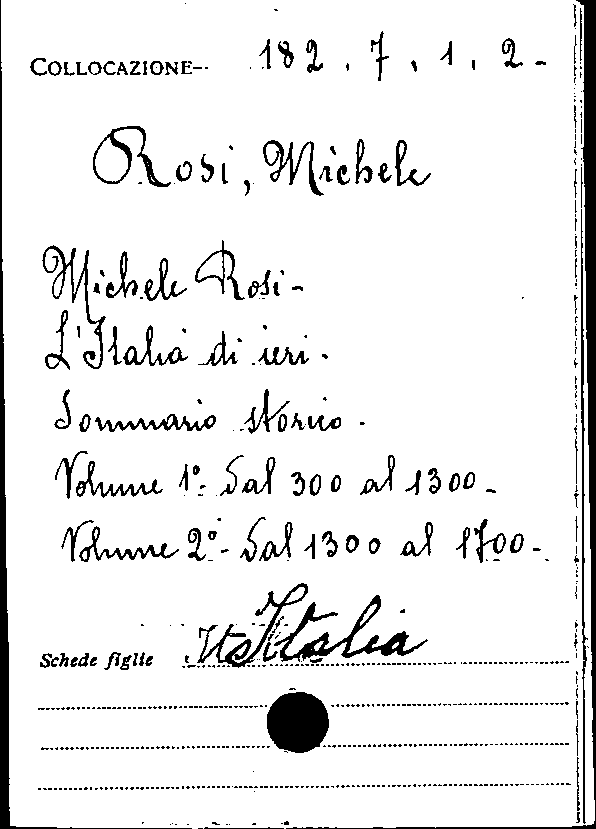 COLLOCAZIONE-- 182. 7. 1. 2-
Rosi, Michele
Michele Rosi-
L'Italia di ieri.
Sommario storico.
Volume 1°- Dal 300 al 1300-
Volume 2°- Dal 1300 al 1700-
Schede figlie Italia